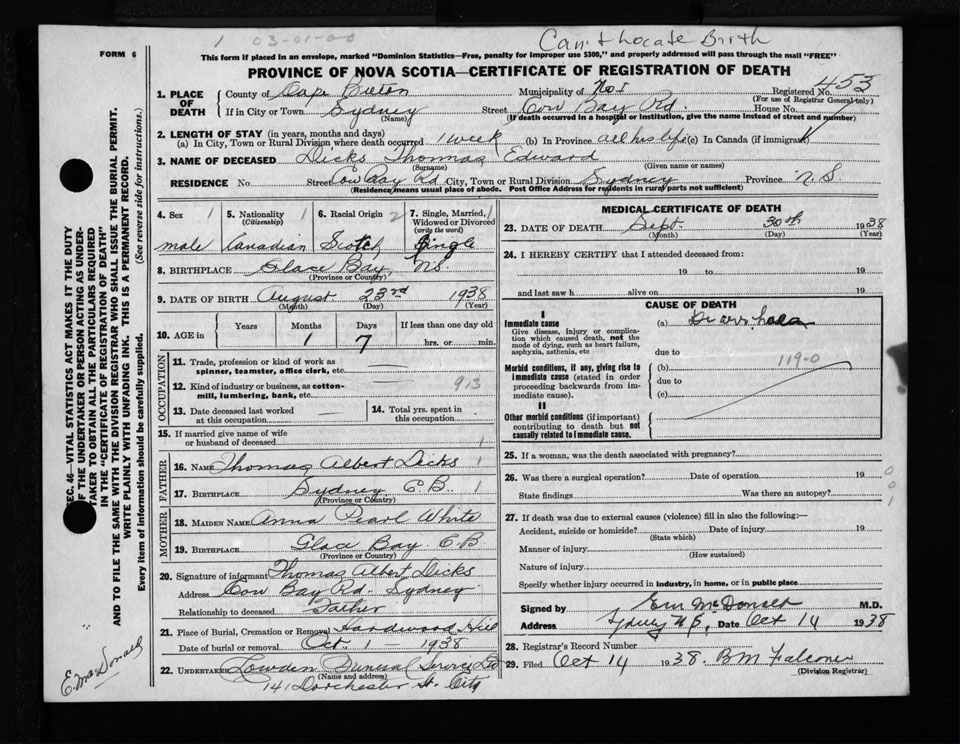 1 03-01-00
Can't Locate Birth
FORM 6
This form if placed in an envelope, marked "Dominion Statistics—Free, penalty for improper use $300," and properly addressed will pass through the mail "FREE"
PROVINCE OF NOVA SCOTIA—CERTIFICATE OF REGISTRATION OF DEATH
1. PLACE OF DEATH County of Cape Breton Municipality of No I Registered No. 453
(For use of Registrar General only)
If in City or Town Sydney Street Cow Bay Rd. House No.
(Name) (If death occurred in a hospital or institution, give the name instead of street and number)
2. LENGTH OF STAY (in years, months and days)
(a) In City, Town or Rural Division where death occurred 1 week (b) In Province all his life (c) In Canada (if immigrant)
3. NAME OF DECEASED Dicks Thomas Edward
(Surname) (Given name or names)
RESIDENCE No Street Cow Bay Rd City, Town or Rural Division Sydney Province N.S.
(Residence means usual place of abode. Post Office Address for residents in rural parts not sufficient)
4. Sex 1 5. Nationality 1 (Citizenship) 6. Racial Origin 2 7. Single, Married, Widowed or Divorced (write the word)
male Canadian Scotch Single
8. BIRTHPLACE Glace Bay, NS.
(Province or Country)
9. DATE OF BIRTH August 23rd 1938
(Month) (Day) (Year)
10. AGE in Years Months Days If less than one day old
1 7 hrs. or min.
OCCUPATION
11. Trade, profession or kind of work as spinner, teamster, office clerk, etc.
12. Kind of industry or business, as cotton-mill, lumbering, bank, etc. 913
13. Date deceased last worked at this occupation 14. Total yrs. spent in this occupation
15. If married give name of wife or husband of deceased 1
FATHER
16. NAME Thomas Albert Dicks 1
17. BIRTHPLACE Sydney C.B. 1
(Province or Country)
MOTHER
18. MAIDEN NAME Anna Pearl White
19. BIRTHPLACE Glace Bay C.B
(Province or Country)
20. Signature of informant Thomas Albert Dicks
Address Cow Bay Rd. Sydney
Relationship to deceased Father
21. Place of Burial, Cremation or Removal Hardwood Hill
Date of burial or removal Oct. 1 1938
22. UNDERTAKER Lowden Funeral Service Ltd
(Name and address)
141 Dorchester St. City
MEDICAL CERTIFICATE OF DEATH
23. DATE OF DEATH Sept. 30th 1938
(Month) (Day) (Year)
24. I HEREBY CERTIFY that I attended deceased from:
19 to 19
and last saw h alive on 19
CAUSE OF DEATH
I
Immediate cause (a) Diarrhoea
Give disease, injury or complication which caused death, not the mode of dying, such as heart failure, asphyxia, asthenia, etc
due to
Morbid conditions, if any, giving rise to immediate cause (stated in order proceeding backwards from immediate cause). (b) 119-0
due to
(c)
II
Other morbid conditions (if important) contributing to death but not causally related to immediate cause.
25. If a woman, was the death associated with pregnancy?
26. Was there a surgical operation? Date of operation 19
State findings Was there an autopsy?
0
0
1
27. If death was due to external causes (violence) fill in also the following:—
Accident, suicide or homicide? Date of injury 19
(State which)
Manner of injury
(How sustained)
Nature of injury
Specify whether injury occurred in industry, in home, or in public place
Signed by McDonald M.D.
Address Sydney Date Oct 14 1938
28. Registrar's Record Number
29. Filed Oct 14 1938. BM Falconer
(Division Registrar)
SEC. 46—VITAL STATISTICS ACT MAKES IT THE DUTY
OF THE UNDERTAKER OR PERSON ACTING AS UNDER-
TAKER TO OBTAIN ALL THE PARTICULARS REQUIRED
IN THE "CERTIFICATE OF REGISTRATION OF DEATH"
AND TO FILE THE SAME WITH THE DIVISION REGISTRAR WHO SHALL ISSUE THE BURIAL PERMIT.
WRITE PLAINLY WITH UNFADING INK. THIS IS A PERMANENT RECORD.
Every item of information should be carefully supplied. (See reverse side for instructions.)
E. MacDonald